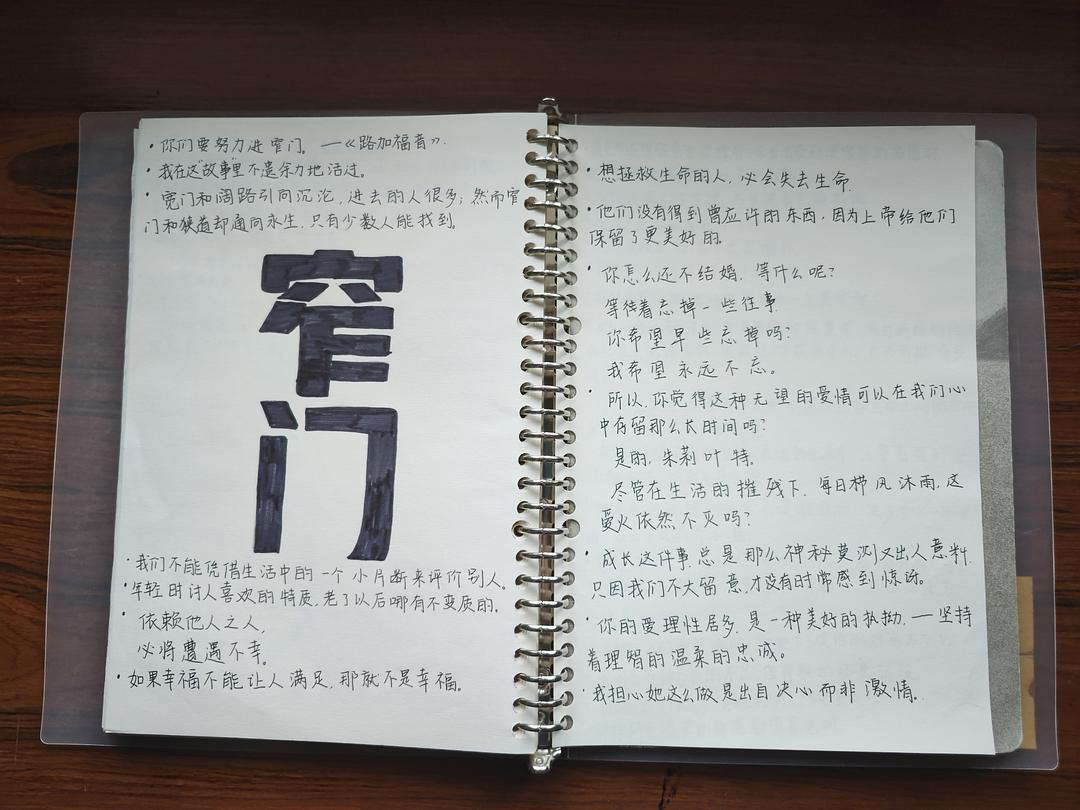 • 你们要努力进窄门。—《路加福音》.
• 我在这"故事"里不遗余力地活过。
• 宽门和阔路引向沉沦，进去的人很多；然而窄
门和狭道却通向永生，只有少数人能找到。
窄
门
• 我们不能凭借生活中的一个小片断来评价别人。
• 年轻时讨人喜欢的特质，老了以后哪有不变质的.
• 依赖他人之人，
必将遭遇不幸。
• 如果幸福不能让人满足，那就不是幸福。
• 想拯救生命的人，必会失去生命.
• 他们没有得到曾应许的东西，因为上帝给他们
保留了更美好的。
• 你怎么还不结婚，等什么呢？
等待着忘掉一些往事.
你希望早些忘掉吗？
我希望永远不忘。
• 所以，你觉得这种无望的爱情可以在我们心
中存留那么长时间吗？
是的，朱莉叶特。
尽管在生活的摧残下，每日栉风沐雨，这
爱火依然不灭吗？
• 成长这件事，总是那么神秘莫测又出人意料，
只因我们不大留意，才没有时常感到惊讶。
• 你的爱理性居多，是一种美好的执拗，—坚持
着理智的温柔的忠诚。
• 我担心她这么做是出自决心而非激情.